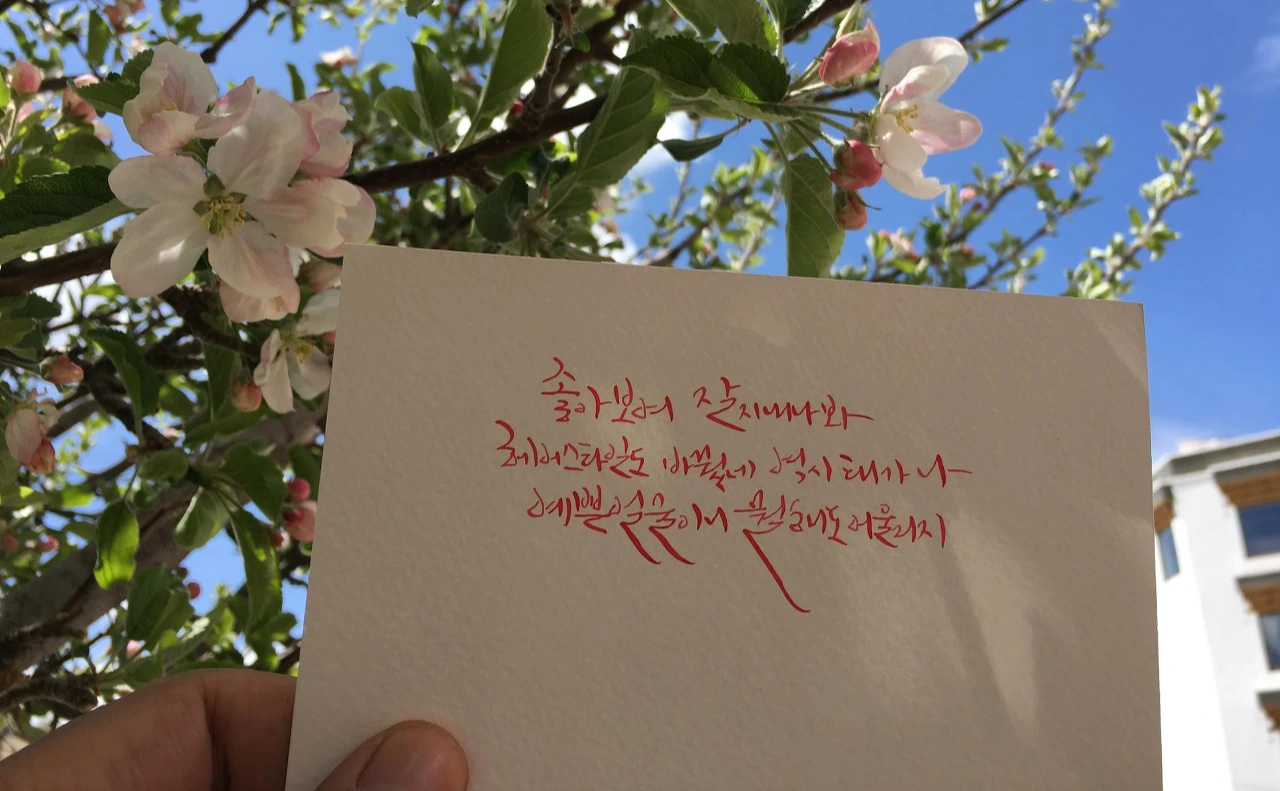 좋아보여 잘지내나봐
헤어스타일도 바꿨네 역시 태가 나
예쁜얼굴이니 뭘해도 어울리지